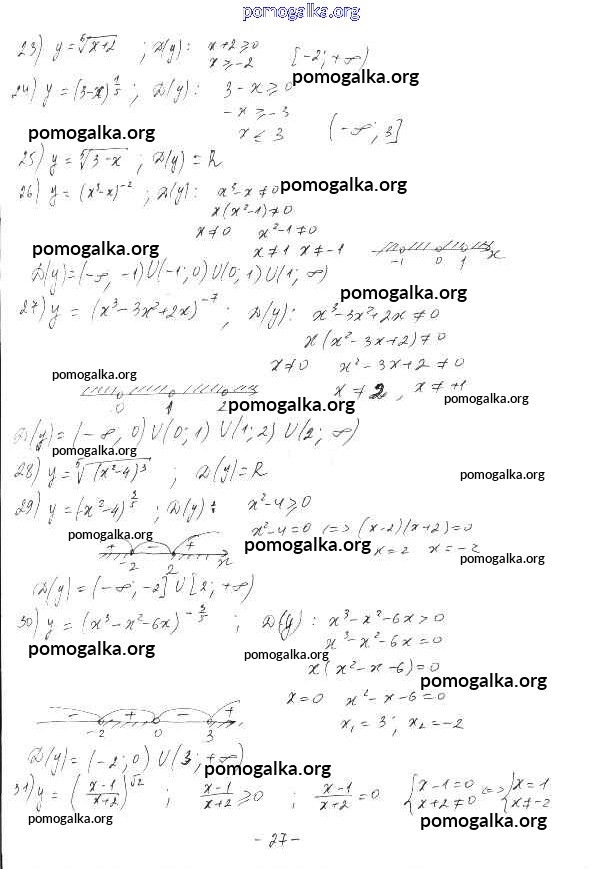 pomogalka.org
23) y = ⁶√x+2 ; D(y): x+2 ≥ 0 [-2; +∞)
x ≥ -2
pomogalka.org
24) y = (3-x)^{1/5} ; D(y): 3-x ≥ 0
-x ≥ -3
pomogalka.org
x ≤ 3 (-∞; 3]
pomogalka.org
25) y = ⁵√3-x ; D(y) = R
26) y = (x³-x)⁻² ; D(y): x³-x ≠ 0
pomogalka.org
x(x²-1) ≠ 0
x ≠ 0 x²-1 ≠ 0
pomogalka.org
x ≠ 1 x ≠ -1
-1 0 1 x
D(y) = (-∞, -1) U (-1; 0) U (0, 1) U (1; ∞)
pomogalka.org
27) y = (x³-3x²+2x)⁻⁷ ; D(y): x³-3x²+2x ≠ 0
x(x²-3x+2) ≠ 0
x ≠ 0 x²-3x+2 ≠ 0
pomogalka.org
x ≠ 2, x ≠ +1
pomogalka.org
0 1 2
pomogalka.org
D(y) = (-∞, 0) U (0; 1) U (1; 2) U (2; ∞)
pomogalka.org
28) y = ⁵√(x²-4)³ ; D(y) = R
pomogalka.org
29) y = (x²-4)^{3/5} ; D(y): x²-4 ≥ 0
x²-4 = 0 <=> (x-2)(x+2) = 0
pomogalka.org
+ - +
pomogalka.org
x = 2 x = -2
pomogalka.org
-2 2 x
D(y) = (-∞; -2] U [2; +∞)
30) y = (x³-x²-6x)^{-3/5} ; D(y): x³-x²-6x > 0
x³-x²-6x = 0
pomogalka.org
pomogalka.org
x(x²-x-6) = 0
pomogalka.org
x = 0 x²-x-6 = 0
x₁ = 3; x₂ = -2
- + - +
-2 0 3
D(y) = (-2; 0) U (3; +∞)
pomogalka.org
31) y = (x-1/x+2)^{√2} ; x-1/x+2 ≥ 0 ; x-1/x+2 = 0 {x-1 = 0 x+2 ≠ 0 <=> {x = 1 x ≠ -2
pomogalka.org
pomogalka.org
- 27 -